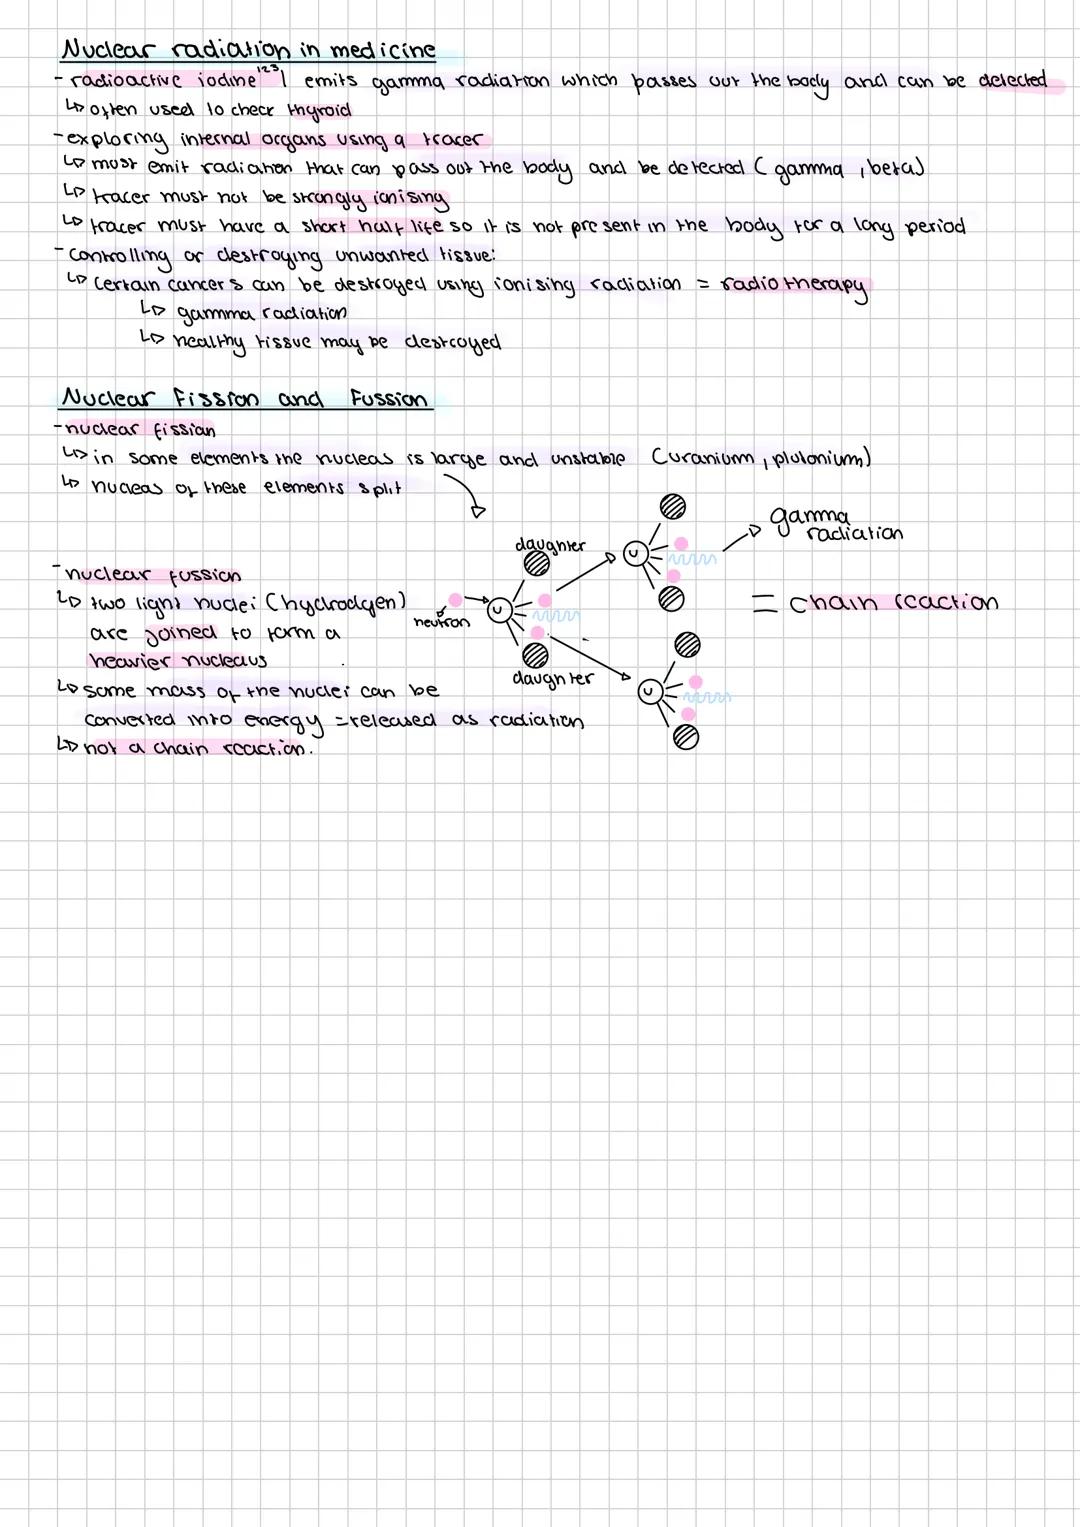 Nuclear radiation in medicine
- radioactive iodine ¹²³I emits gamma radiation which passes out the body and can be detected
↳ often used to check thyroid
- exploring internal organs using a tracer
↳ must emit radiation that can pass out the body and be detected (gamma, beta)
↳ tracer must not be strongly ionising
↳ tracer must have a short half life so it is not present in the body for a long period
- controlling or destroying unwanted tissue:
↳ certain cancers can be destroyed using ionising radiation = radiotherapy
↳ gamma radiation
↳ healthy tissue may be destroyed
Nuclear Fission and Fussion
- nuclear fission
↳ in some elements the nucleas is large and unstable (uranium, plutonium)
↳ nucleas of these elements split
daughter
neutron
U
daughter
U
U
gamma
radiation
= chain reaction
- nuclear fussion
↳ two light nuclei (hydrodgen)
are joined to form a
heavier nucleaus
↳ some mass of the nuclei can be
converted into energy = released as radiation
↳ not a chain reaction.